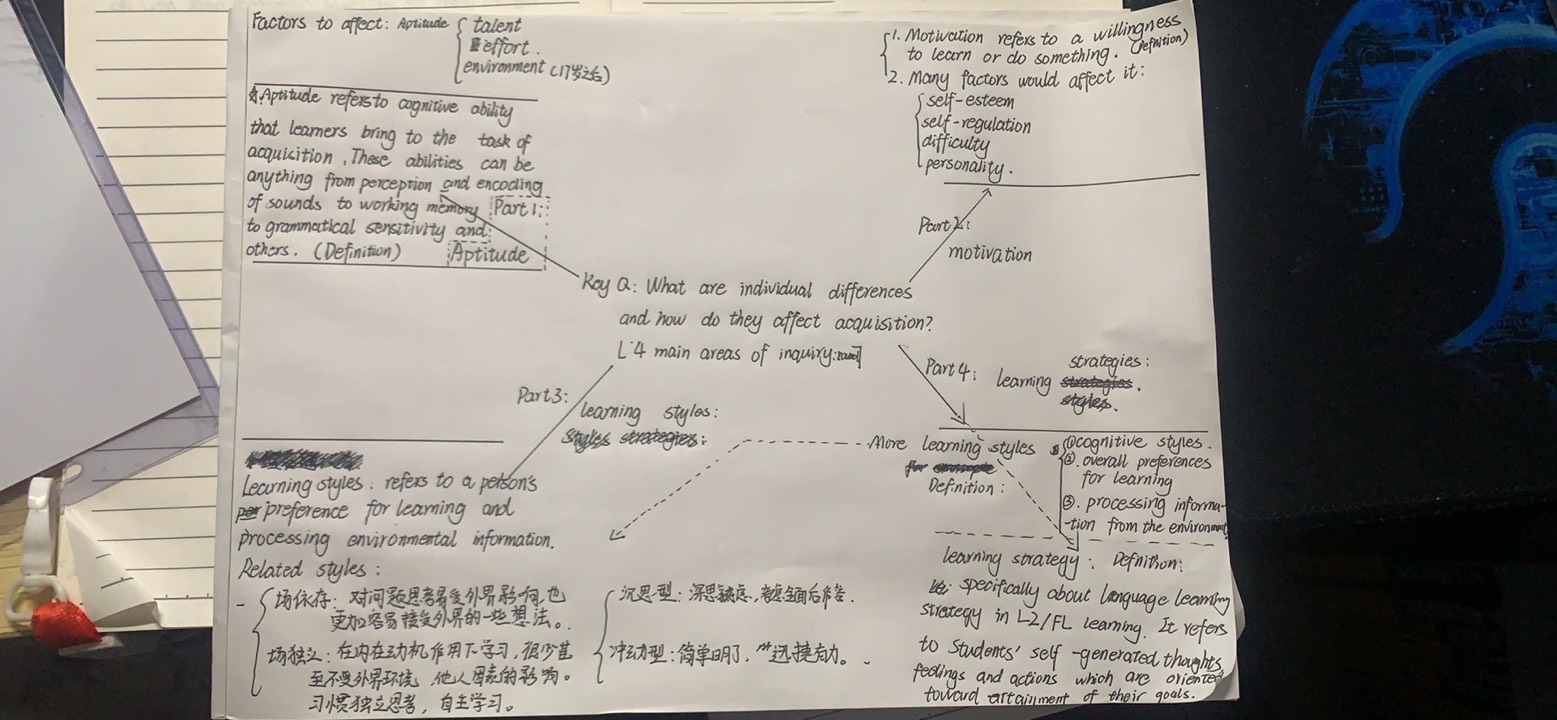 Factors to affect: Aptitude
talent
effort.
environment (17岁之后)
Aptitude refers to cognitive ability
that learners bring to the task of
acquisition. These abilities can be
anything from perception and encoding
of sounds to working memory
to grammatical sensitivity and
others. (Definition)
Part 1:
Aptitude
1. Motivation refers to a willingness
to learn or do something. (Definition)
2. Many factors would affect it:
self-esteem
self-regulation
difficulty
personality.
Part 2:
motivation
Key Q: What are individual differences
and how do they affect acquisition?
4 main areas of inquiry:
Part 3:
learning styles:
Styles strategies:
Part 4:
strategies:
learning strategies.
styles.
Learning styles: refers to a person's
preference for learning and
processing environmental information.
Related styles:
场依存: 对问题思考易受外界影响,也
更加容易接受外界的一些想法。
场独立: 在内在动机作用下学习, 很少甚
至不受外界环境, 他人因素的影响。
习惯独立思考, 自主学习。
沉思型: 深思熟虑, 考虑全面后作答.
冲动型: 简单明了, 迅捷有力。
More learning styles
for
Definition:
①cognitive styles.
②. overall preferences
for learning
③. processing informa-
-tion from the environment
learning strategy: Definition:
specifically about language learning
strategy in L2/FL learning. It refers
to students' self-generated thoughts,
feelings and actions which are oriented
toward attainment of their goals.